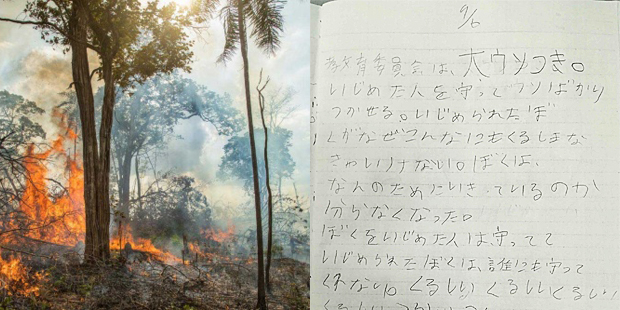 9/6
教育委員会は、大ウソつき。
いじめた人を守ってウソばかり
つかせる。いじめられたぼ
くがなぜこんなにもくるしまな
きゃいけない。ぼくは、
なんのためにいきているのか
分らなくなった。
ぼくをいじめた人は守ってて
いじめられたぼくは、誰にも守って
くれない。くるしいくるしいくるしい